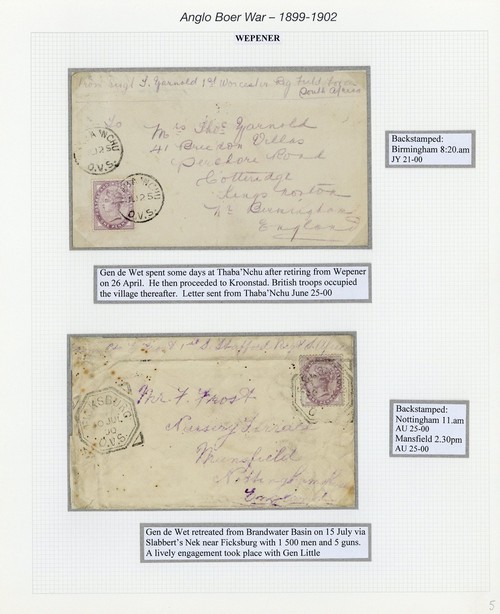 Anglo Boer War – 1899-1902
WEPENER
From Sergt T. Yarnold 1st Worcester Reg Field Force
South Africa
To
Mrs Thos Yarnold
41 Bredon Villas
Pershore Road
Cotteridge
Kings norton
Nr Birmingham
England
THABA'NCHU
O.V.S.
THABA'NCHU
O.V.S.
Backstamped:
Birmingham 8:20.am
JY 21-00
Gen de Wet spent some days at Thaba’Nchu after retiring from Wepener
on 26 April. He then proceeded to Kroonstad. British troops occupied
the village thereafter. Letter sent from Thaba’Nchu June 25-00
FICKSBURG
O.V.S.
Mr F. Frost
Nursery Terrace
Mansfield
Nottingham
England
Backstamped:
Nottingham 11.am
AU 25-00
Mansfield 2.30pm
AU 25-00
Gen de Wet retreated from Brandwater Basin on 15 July via
Slabbert’s Nek near Ficksburg with 1 500 men and 5 guns.
A lively engagement took place with Gen Little
5